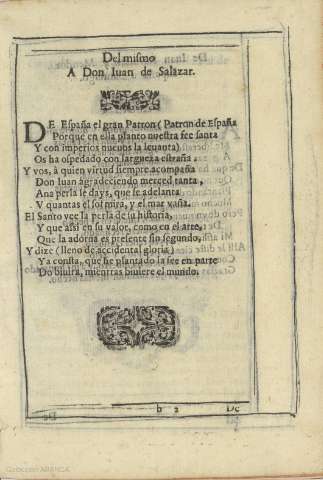 Del mismo
A Don Iuan de Salazar.
DE España el gran Patron (Patron de España
Porque en ella planto nuestra fee santa
Y con imperios nueuos la leuanta)
Os ha ospedado con largueza estraña.
Y vos, à quien virtud siempre acompaña
Don Iuan agradeciendo merced tanta,
Ana perla le days, que se adelanta
V quantas el sol mira, y el mar vaña.
El Santo vee la perla de su historia,
Y que assi en su valor, como en el arte,
Que la adorna es presente sin segundo,
Y dize (lleno de accidental gloria)
Ya consta, que he plantado la fee en parte
Do biuira, mientras biuiere el mundo.
b 2
De